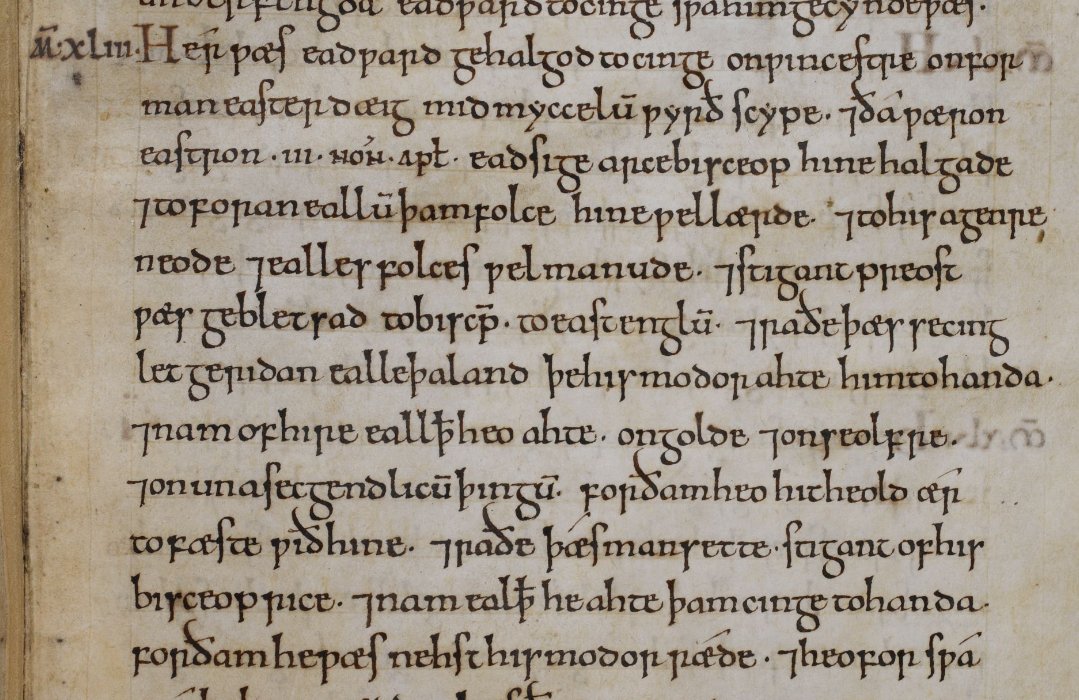 eadƿard to cinge sƿa him gecynde ƿæs.
m̄.xliii. Her ƿæs eadƿard gehalgod to cinge on ƿincestre on for
man easter dæig mid myccelū ƿyrðscype. ⁊ ða ƿæron
eastron .iii. noń. apł. eadsige arcebisceop hine halgade
⁊ to foran eallū þam folce hine ƿel lærde. ⁊ to his agenre
neode ⁊ ealles folces ƿel manude. ⁊ stigant preost
ƿæs gebletsad to biscp̄. to east englū. ⁊ raðe þæs se cing
let geridan ealle þa land þe his modor ahte him to handa.
⁊ nam of hire eall ꝥ heo ahte. on golde ⁊ on seolfre.
⁊ on unasecgendlicū þingū. forðam heo hit heold ær
to fæste ƿið hine. ⁊ raðe þæs man sette stigant of his
bisceoprice. ⁊ nam eal ꝥ he ahte þam cinge to handa.
forðam he ƿæs nehst his modor ræde. ⁊ heo for sƿa